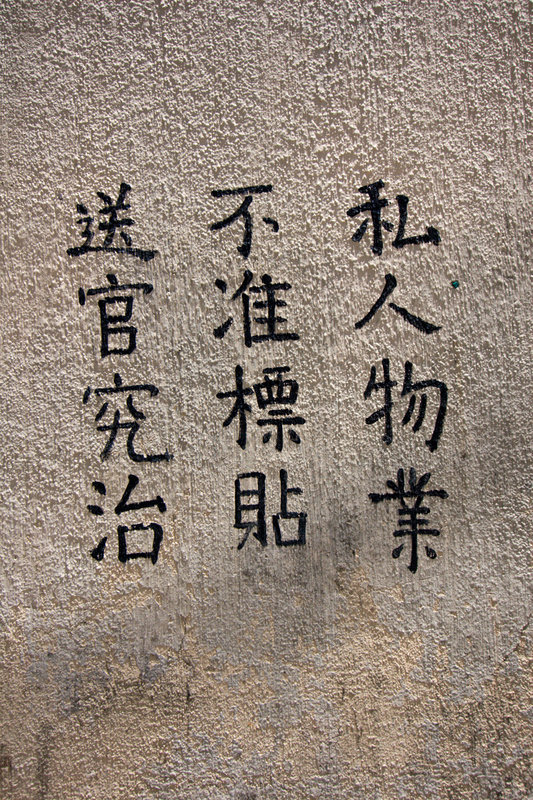 私人物業
不准標貼
送官究治